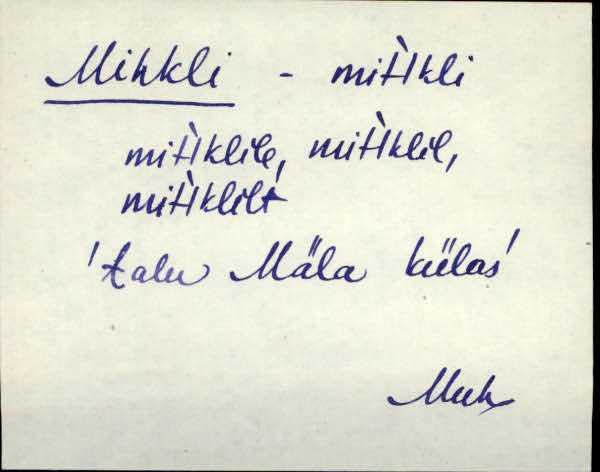 Mihkli - mìhkli
mìhklile, mìhklil,
mìhklilt
'talu Mäla külas'
Muh